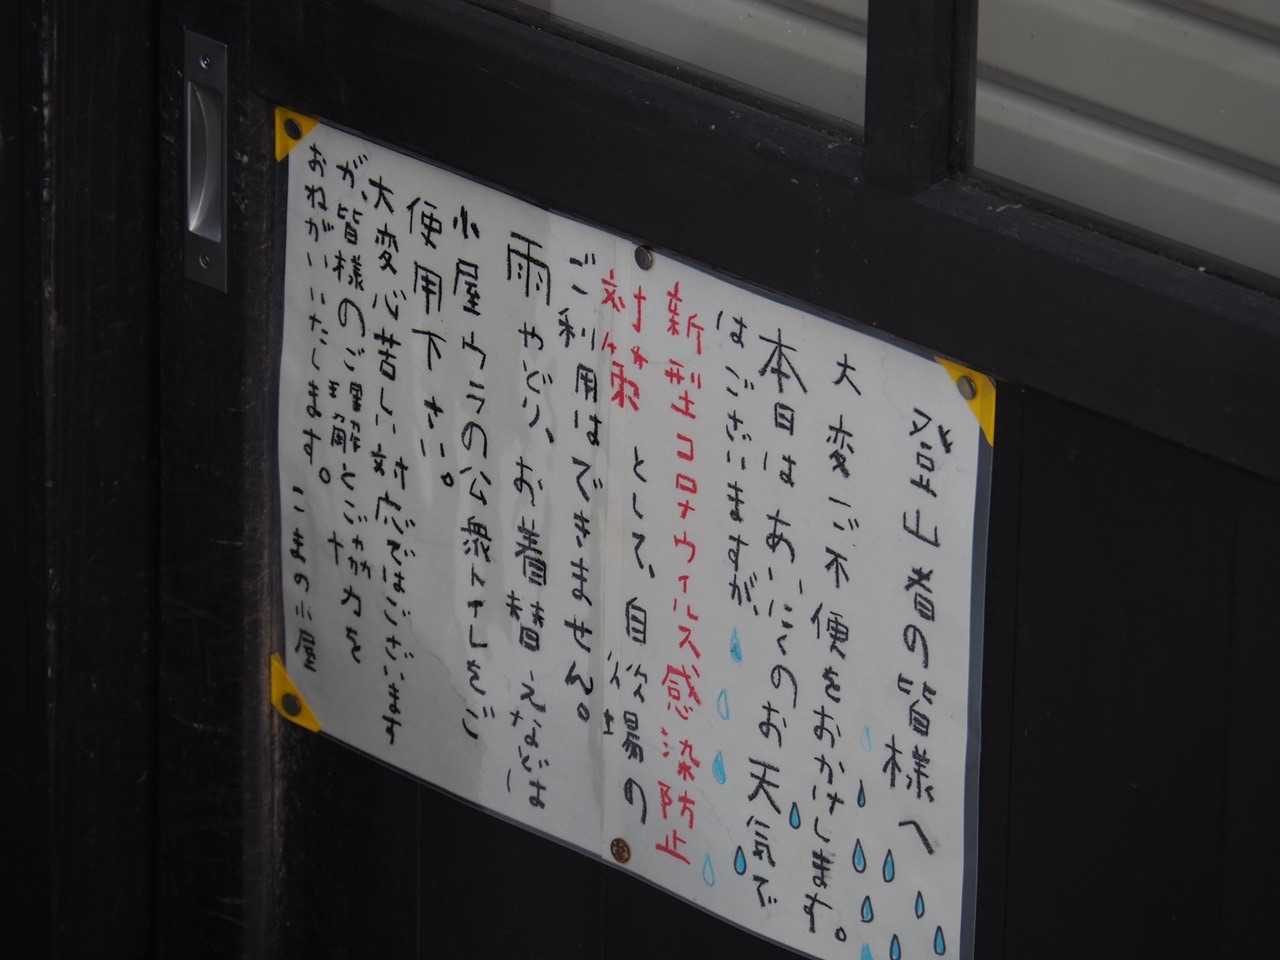 登山者の皆様へ
大変ご不便をおかけします。
本日はあいにくのお天気で
はございますが、
新型コロナウィルス感染防止
対策として、自炊場の
ご利用はできません。
雨やどり、お着替えなどは
小屋ウラの公衆トイレをご
使用下さい。
大変心苦しい対応ではございます
が、皆様のご理解とご協力を
おねがいいたします。 こまの小屋